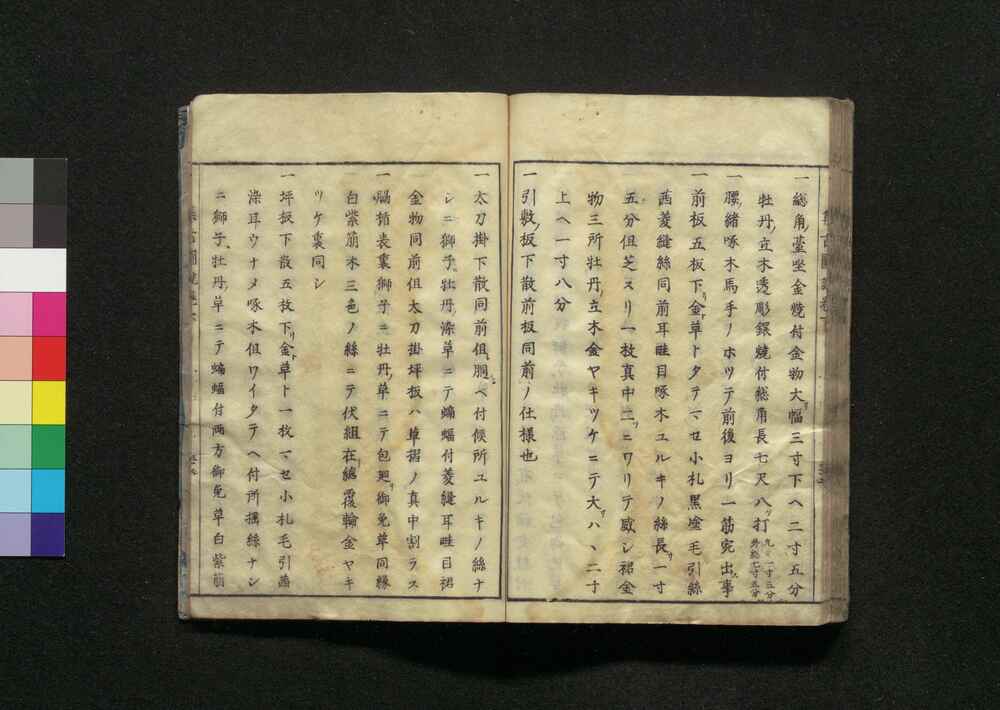 一總角ノ臺坐金燒付金物大サ幅三寸下ヘ二寸五分
牡丹ノ立木透彫銀燒付総角長七尺八ツ打
一腰緒啄木馬手ノホツテ前後ヨリ一筋宛出ス事
一前板五板下リ金草トタテマセ小札黒塗毛引絲
茜菱縫絲同前耳畦目啄木ユルキノ絲長サ一寸
五分但芝スリ一枚真中二ツニワリテ威シ裙金
物三所牡丹ノ立木金ヤキツケニテ大サハヽ二寸
上ヘ一寸八分
一引敷ノ板下散前板同前ノ仕様也
一太刀掛下散同前但胴ヘ付候所ユルキノ絲ナ
シニ獅子牡丹ノ染草ニテ蝙蝠付菱縫耳畦目裙
金物同前但太刀掛坪板ハ草摺ノ真中割ラス
一脇楯表裏獅子ニ牡丹ノ草ニテ包廻リ御免草同縁
白紫萠木三色ノ絲ニテ伏組在總覆輪金ヤキ
ツケ裏同シ
一坪板下散五枚下リ金草ト一枚マセ小札毛引茜
染耳ウナメ啄木但ワイタテヘ付所揺絲ナシ
ニ獅子ニ牡丹ノ草ニテ蝙蝠付両方御免草白紫萠